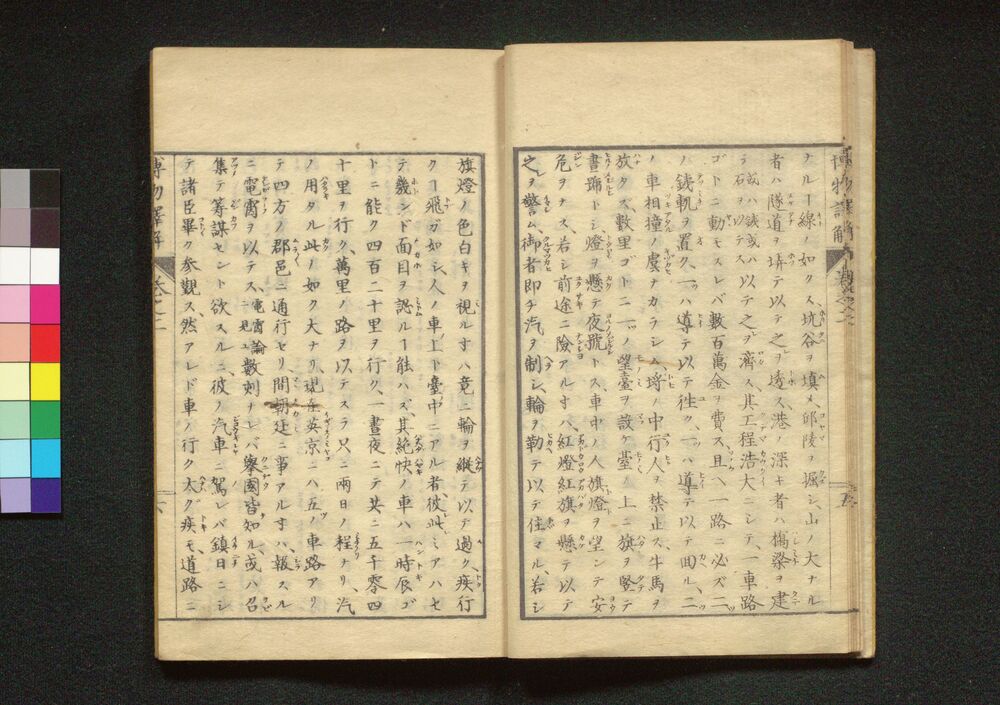 博物譯解 卷之二 五
ナルヿ線ノ如クス、坑谷ヲ塡メ、邱陵ヲ堀シ、山ノ大ナル
者ハ隧道ヲ塀テ以テ之ヲ透ス、港ノ深キ者ハ橋梁ヲ建
テ或ハ鉄或ハ石ヲ以テス以テ之ヲ濟ス、其工程浩大ニシテ、車路
ゴトニ動モスレバ數百萬金ヲ費ス、且ヘ一路ニ必ズ二
ノ鉄軌ヲ置ク、一ハ導テ以テ往ク、一ハ導テ以テ囬ル、二
ノ車相撞ノ虞ナカラシム、埒ノ中行人ヲ禁止ス、牛馬ヲ
放タズ、數里ゴトニ一ツノ望臺ヲ設ケ、臺ノ上ニ旗ヲ竪テ
晝號トシ、燈ヲ懸テ夜號トス、車中ノ人旗燈ヲ望ンデ安
危ヲナス、若シ前途ニ險アル寸ハ、紅燈紅旗ヲ懸テ以テ
之ヲ警ム、御者即チ汽ヲ制シ、輪ヲ勒テ以テ住マル、若シ
旗燈ノ色白キヲ視ル寸ハ竟ニ輪ヲ縱テ以テ過ク、疾行
クヿ飛ガ如シ、人ノ車上ト臺中ニアル者、彼此ミアハセ
テ幾ンド面目ヲ認ルヿ能ハズ、其絶快ノ車ハ一時辰ゴ
トニ能ク四百二十里ヲ行ク、一晝夜ニテ共ニ五千零四
十里ヲ行ク、萬里ノ路ヲ以テスラ只ニ兩日ノ程ナリ、汽
ノ用タル此ノ如ク大ナリ、現在英京ニハ五ノ車路アリ
テ四方ノ郡邑ニ通行セリ、間朝廷ニ事アル寸ハ、報スル
ニ電霄ヲ以テス、電霄論ニ見ユ數刻ナレバ擧國皆知ル、或ハ召
集テ籌謀セント欲スルニ、彼ノ汽車ニ駕レバ鎮日ニシ
テ諸臣畢ク參觀ス、然アレド車ノ行ク太ダ疾モ、道路ニ
博物譯解 卷之二 六